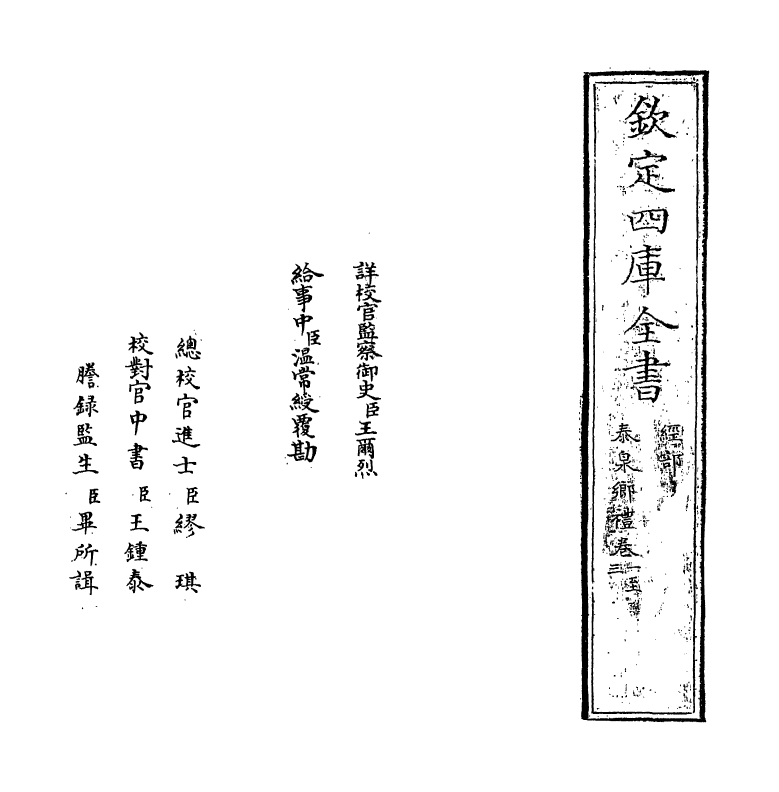 欽定四庫全書
經部
泰泉鄉禮卷一至三
詳校官監察御史臣王爾烈
給事中臣溫常綬覆勘
總校官進士臣繆琪
校對官中書臣王鍾泰
謄錄監生臣畢所諿